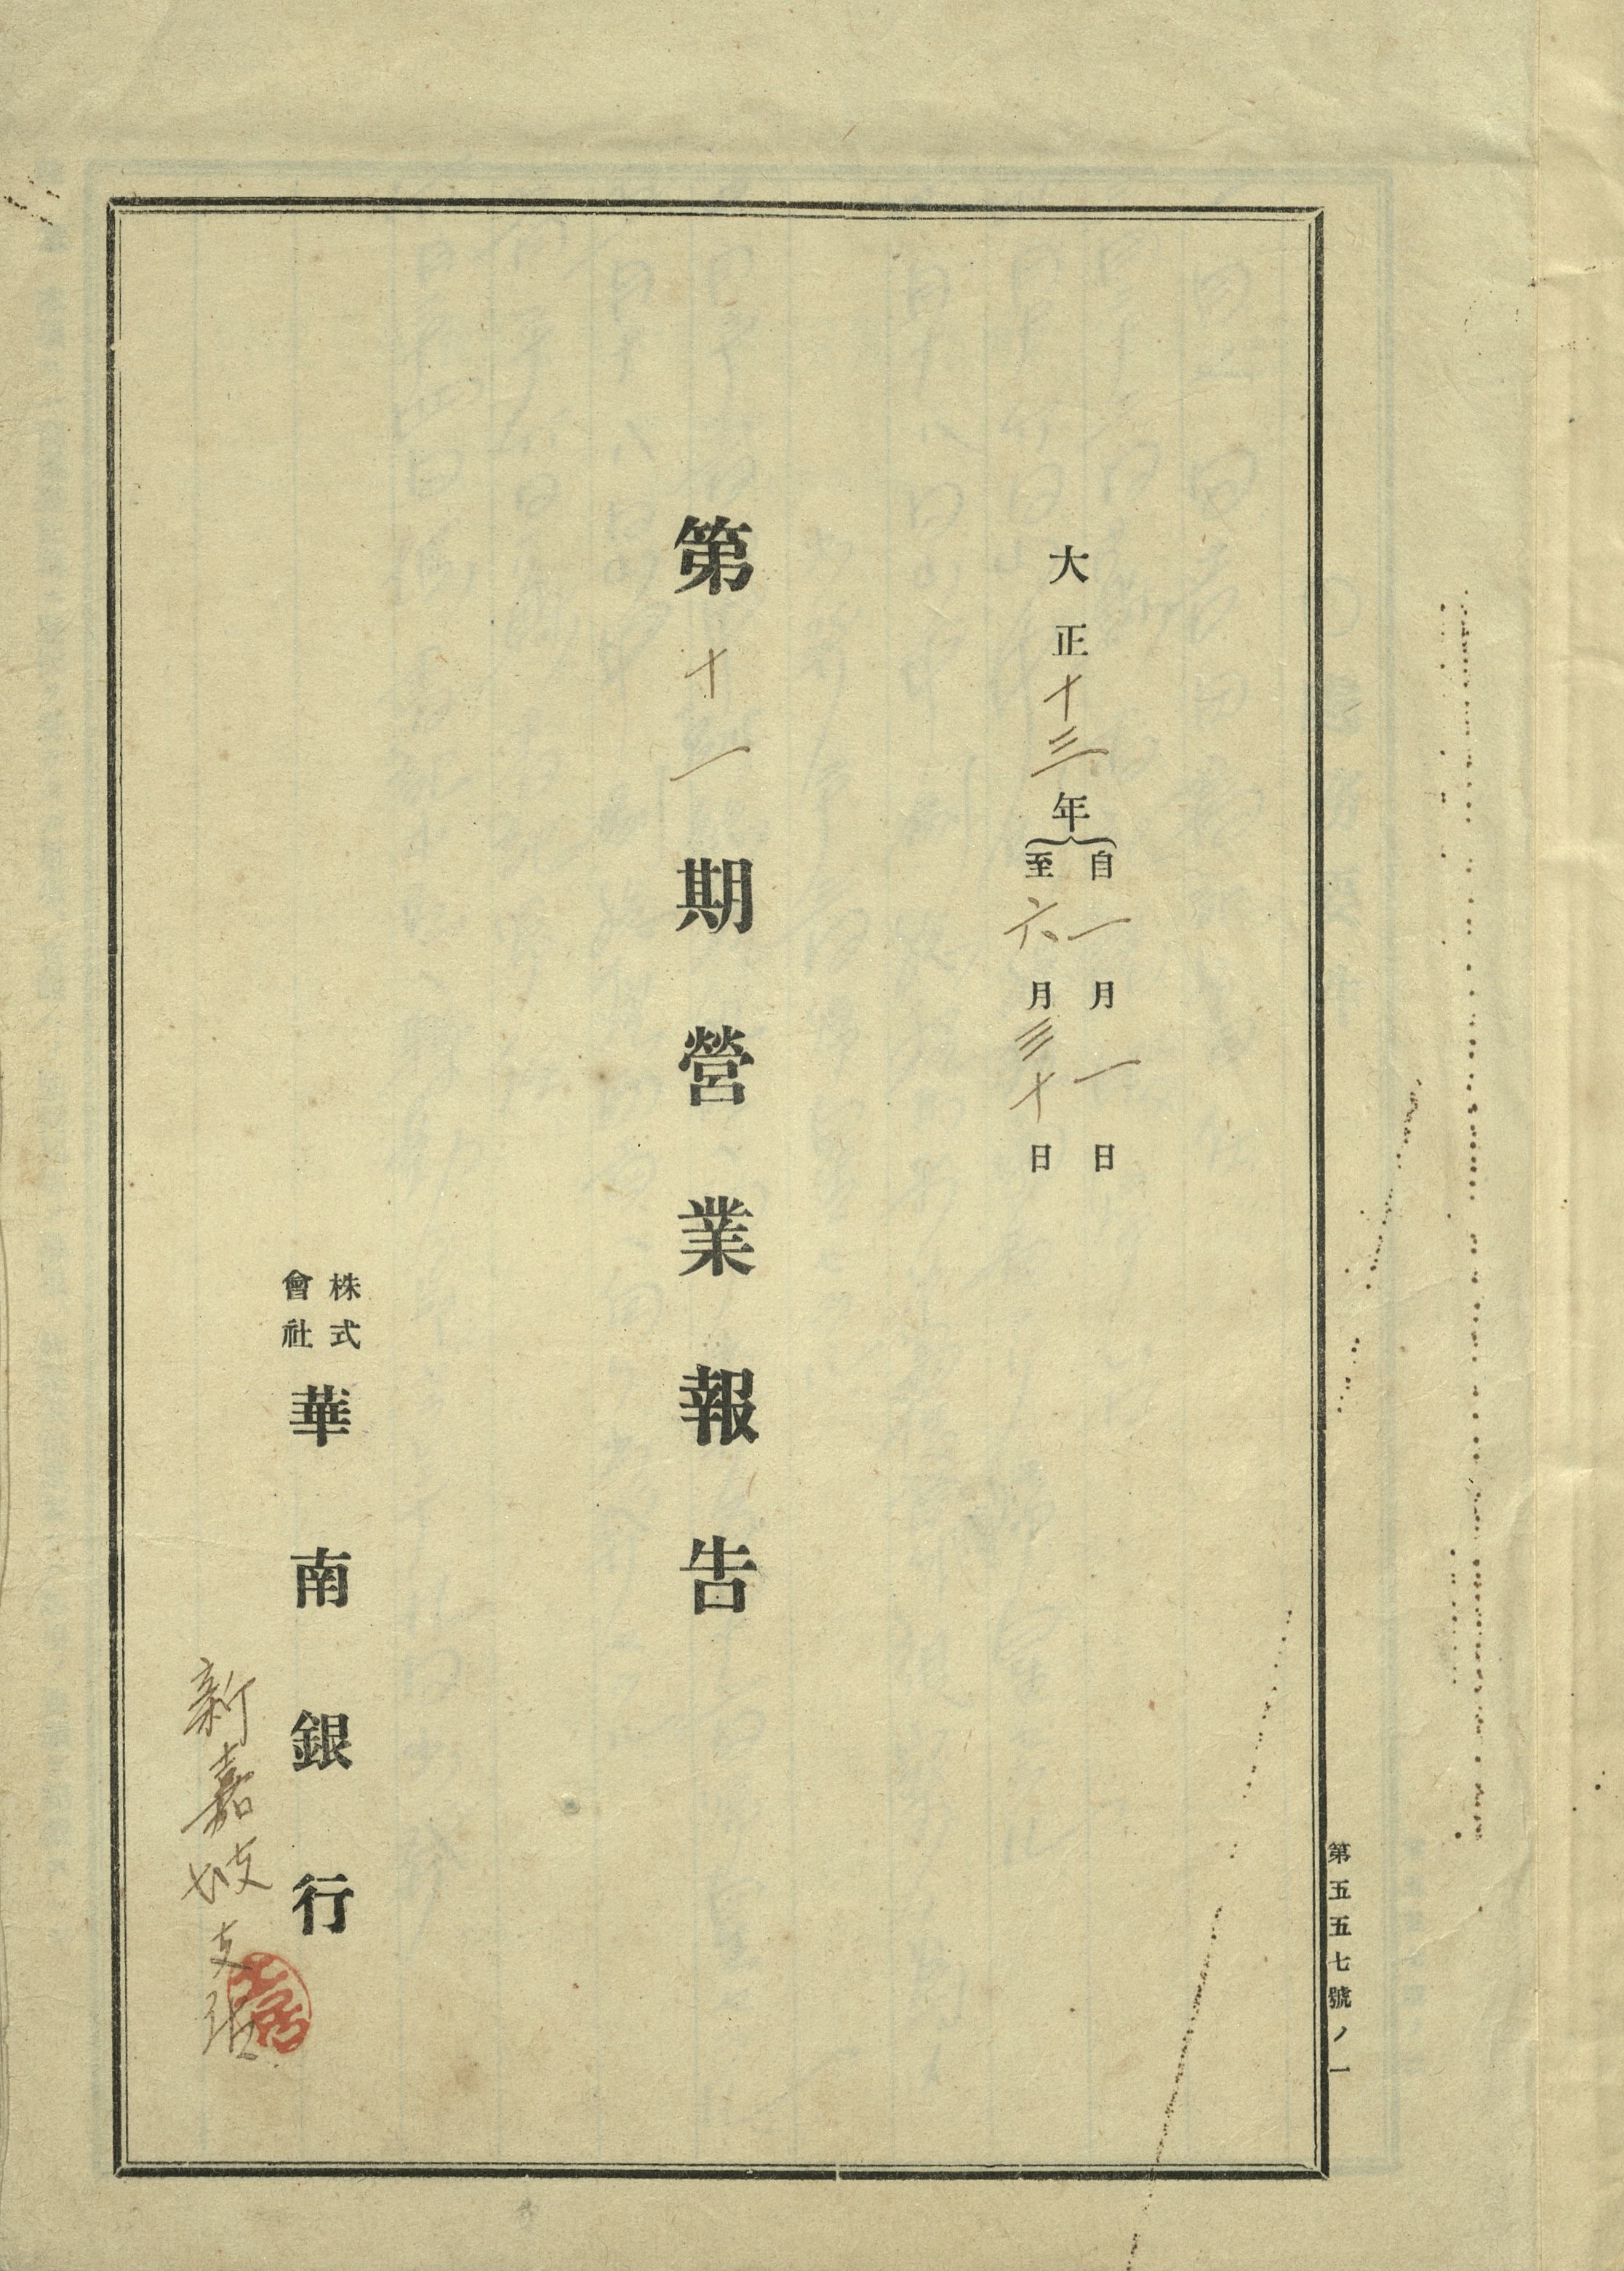 大正十三年
自一月一日
至六月三十日
第十一期營業報告
株式
會社
華南銀行
新嘉坡支張
第五五七號ノ一